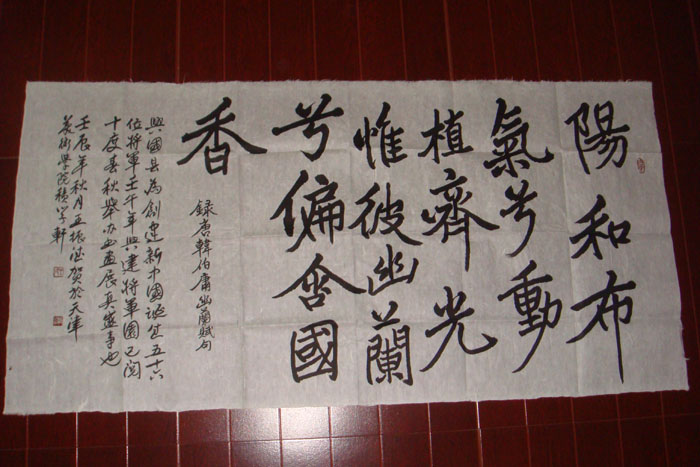 陽和布
氣兮動
植齊光
惟彼幽蘭
兮偏含國
香
録唐韓伯庸幽蘭賦句
興國县為創建新中國誕生五十六
位将軍壬午年興建将軍園已閲
十度春秋舉办書畫展真盛事也
壬辰年秋月王振德賀於天津
美術學院積學軒